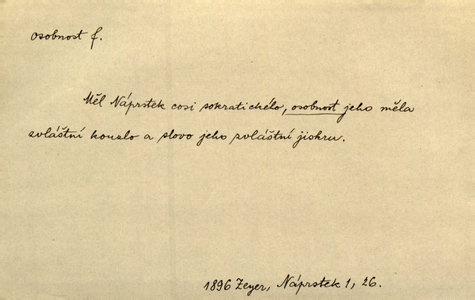 osobnost f.
Měl Náprstek cosi sokratického, osobnost jeho měla
zvláštní kouzlo a slovo jeho zvláštní jiskru.
1896 Zeyer, Náprstek 1, 26.